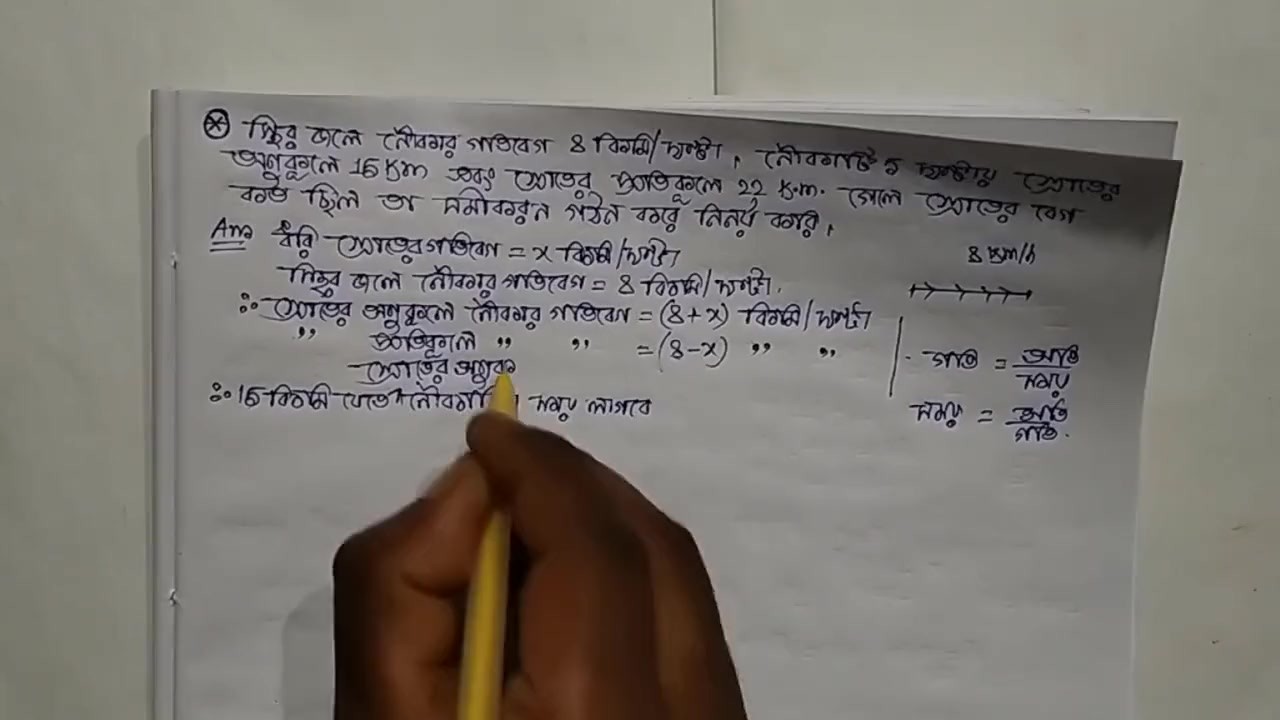 স্থির জলে নৌকার গতিবেগ 8 কিমি/ঘণ্টা। নৌকাটি 5 ঘণ্টায় স্রোতের
অনুকূলে 15 Km এবং স্রোতের প্রতিকূলে 22 K.m. গেলে স্রোতের বেগ
কত ছিল তা সমীকরন গঠন করে নির্নয় করি।
Ans ধরি স্রোতের গতিবেগ = x কিমি/ঘণ্টা
স্থির জলে নৌকার গতিবেগ = 8 কিমি/ঘণ্টা.
∴ স্রোতের অনুকূলে নৌকার গতিবেগ = (8+x) কিমি/ঘণ্টা
" প্রতিকূলে " " = (8-x) " "
স্রোতের অনুক
∴ 15 কিমি যেতে সময় লাগবে
8 Km/h
গতি = অতি/সময়
সময় = অতি/গতি.